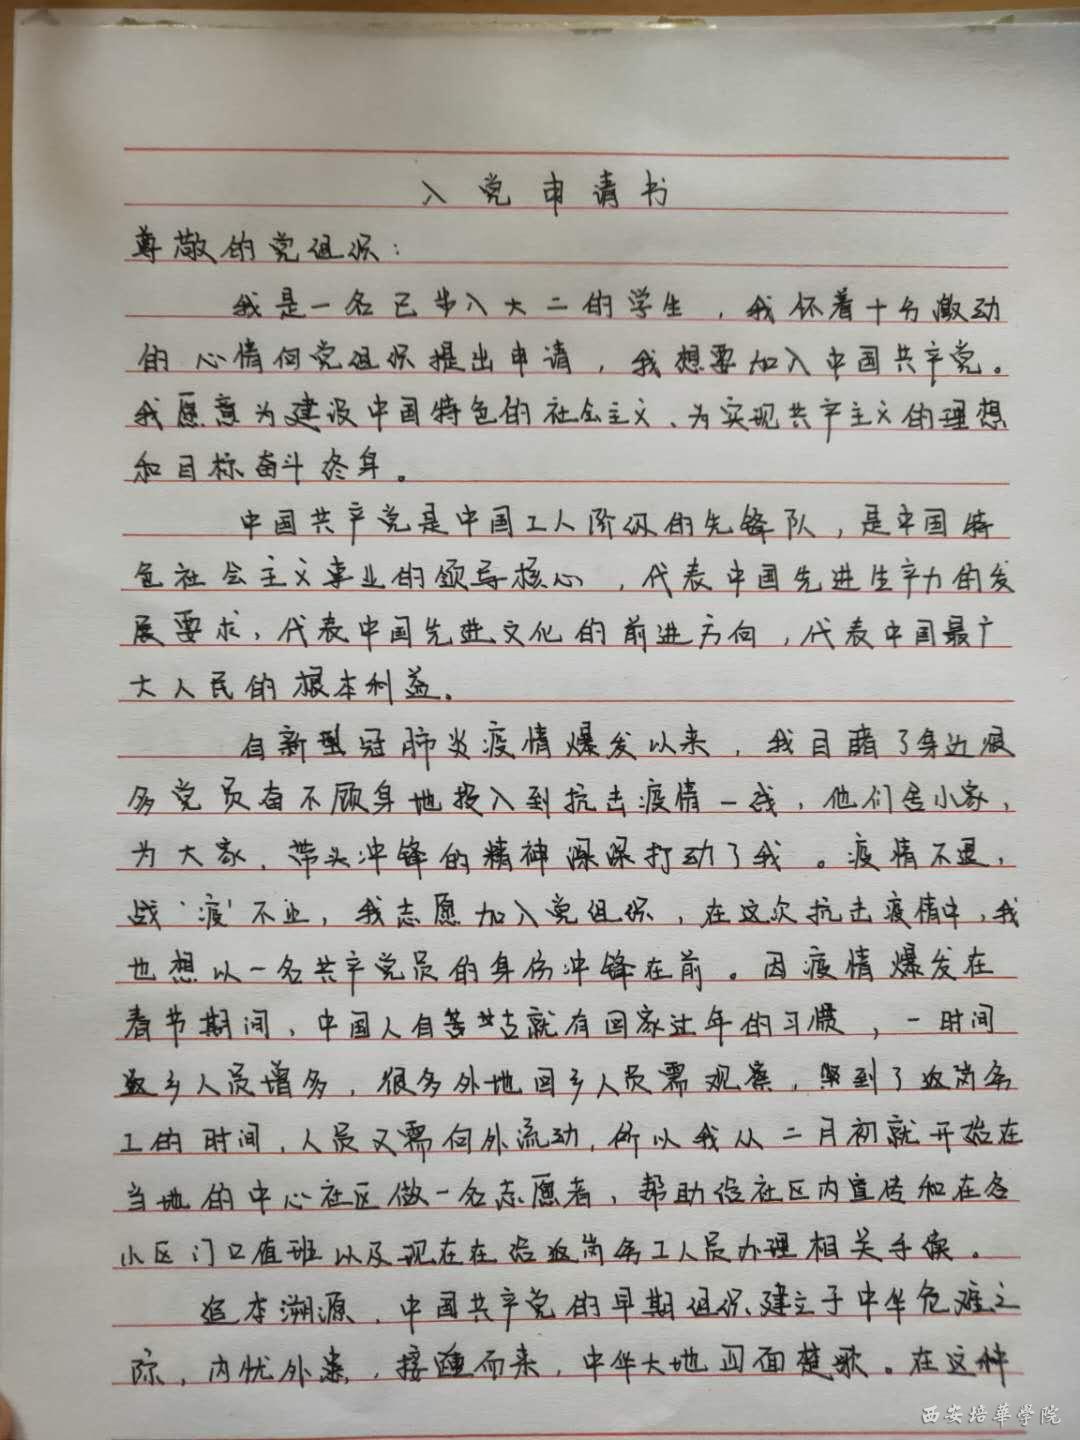 入党申请书
尊敬的党组织：
我是一名已步入大二的学生，我怀着十分激动
的心情向党组织提出申请，我想要加入中国共产党。
我愿意为建设中国特色的社会主义、为实现共产主义的理想
和目标奋斗终身。
中国共产党是中国工人阶级的先锋队，是中国特
色社会主义事业的领导核心，代表中国先进生产力的发
展要求，代表中国先进文化的前进方向，代表中国最广
大人民的根本利益。
自新型冠肺炎疫情爆发以来，我目睹了身边很
多党员奋不顾身地投入到抗击疫情一线，他们舍小家，
为大家，带头冲锋的精神深深打动了我。疫情不退，
战‘疫’不止，我志愿加入党组织，在这次抗击疫情中，我
也想以一名共产党员的身份冲锋在前。因疫情爆发在
春节期间，中国人自古就有回家过年的习惯，一时间
返乡人员增多，很多外地回乡人员需观察，又到了返岗务
工的时间，人员又需向外流动，所以我从二月初就开始在
当地的中心社区做一名志愿者，帮助给社区内宣传和在各
小区门口值班以及现在在给返岗务工人员办理相关手续。
追本溯源，中国共产党的早期组织建立于中华危难之
际，内忧外患，接踵而来，中华大地四面楚歌。在这种
西安培華学院